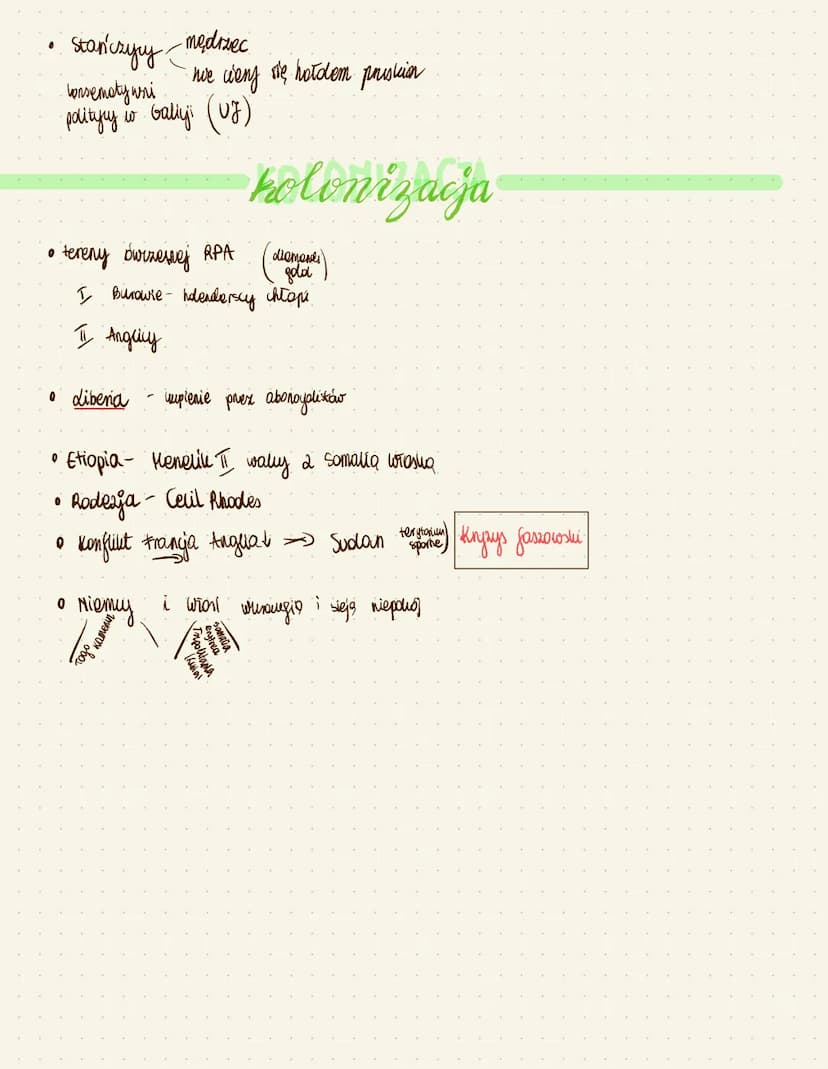 • Stańczycy mędrzec
nie cieszy się hołdem pruskim
konserwatywni
politycy w Galicji (UJ)
kolonizacja
• tereny ówczesnej RPA (diamenty
gold)
I Burowie - holenderscy chłopi
II Anglicy
• Liberia - kupienie przez abonoyalistów
• Etiopia - Menelik II walczy z Somalią Włoską
• Rodezja - Cecil Rhodes
• Konflikt Francja Anglia -> Sudan terytorium
sporne) Kryzys faszowski
• Niemcy i Włosi i sieją niepokój
Togo Kamerun
Somalia
Erytrea